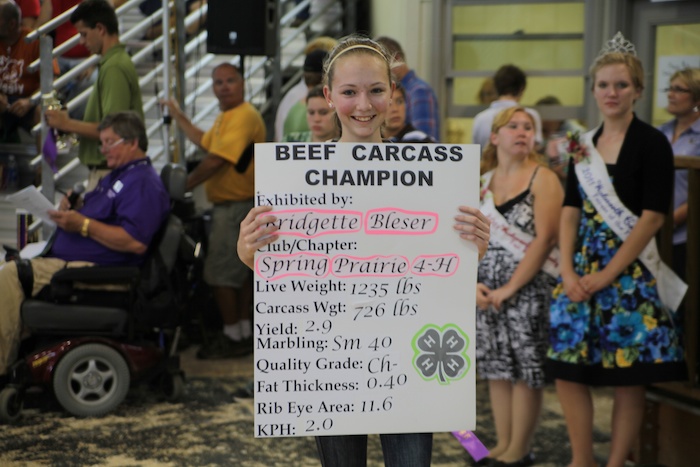 BEEF CARCASS
CHAMPION
Exhibited by:
Bridgette Bleser
Club/Chapter:
Spring Prairie 4-H
Live Weight: 1235 lbs
Carcass Wgt: 726 lbs
Yield: 2.9
Marbling: Sm 40
Quality Grade: Ch-
Fat Thickness: 0.40
Rib Eye Area: 11.6
KPH: 2.0
H H
H H